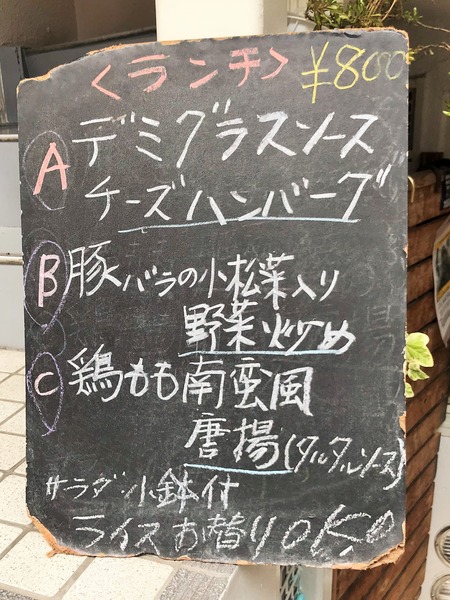 <ランチ> ¥800
A デミグラスソース
チーズハンバーグ
B 豚バラの小松菜入り
野菜炒め
C 鶏もも南蛮風
唐揚(タルタルソース)
サラダ小鉢付
ライスお替りOK。